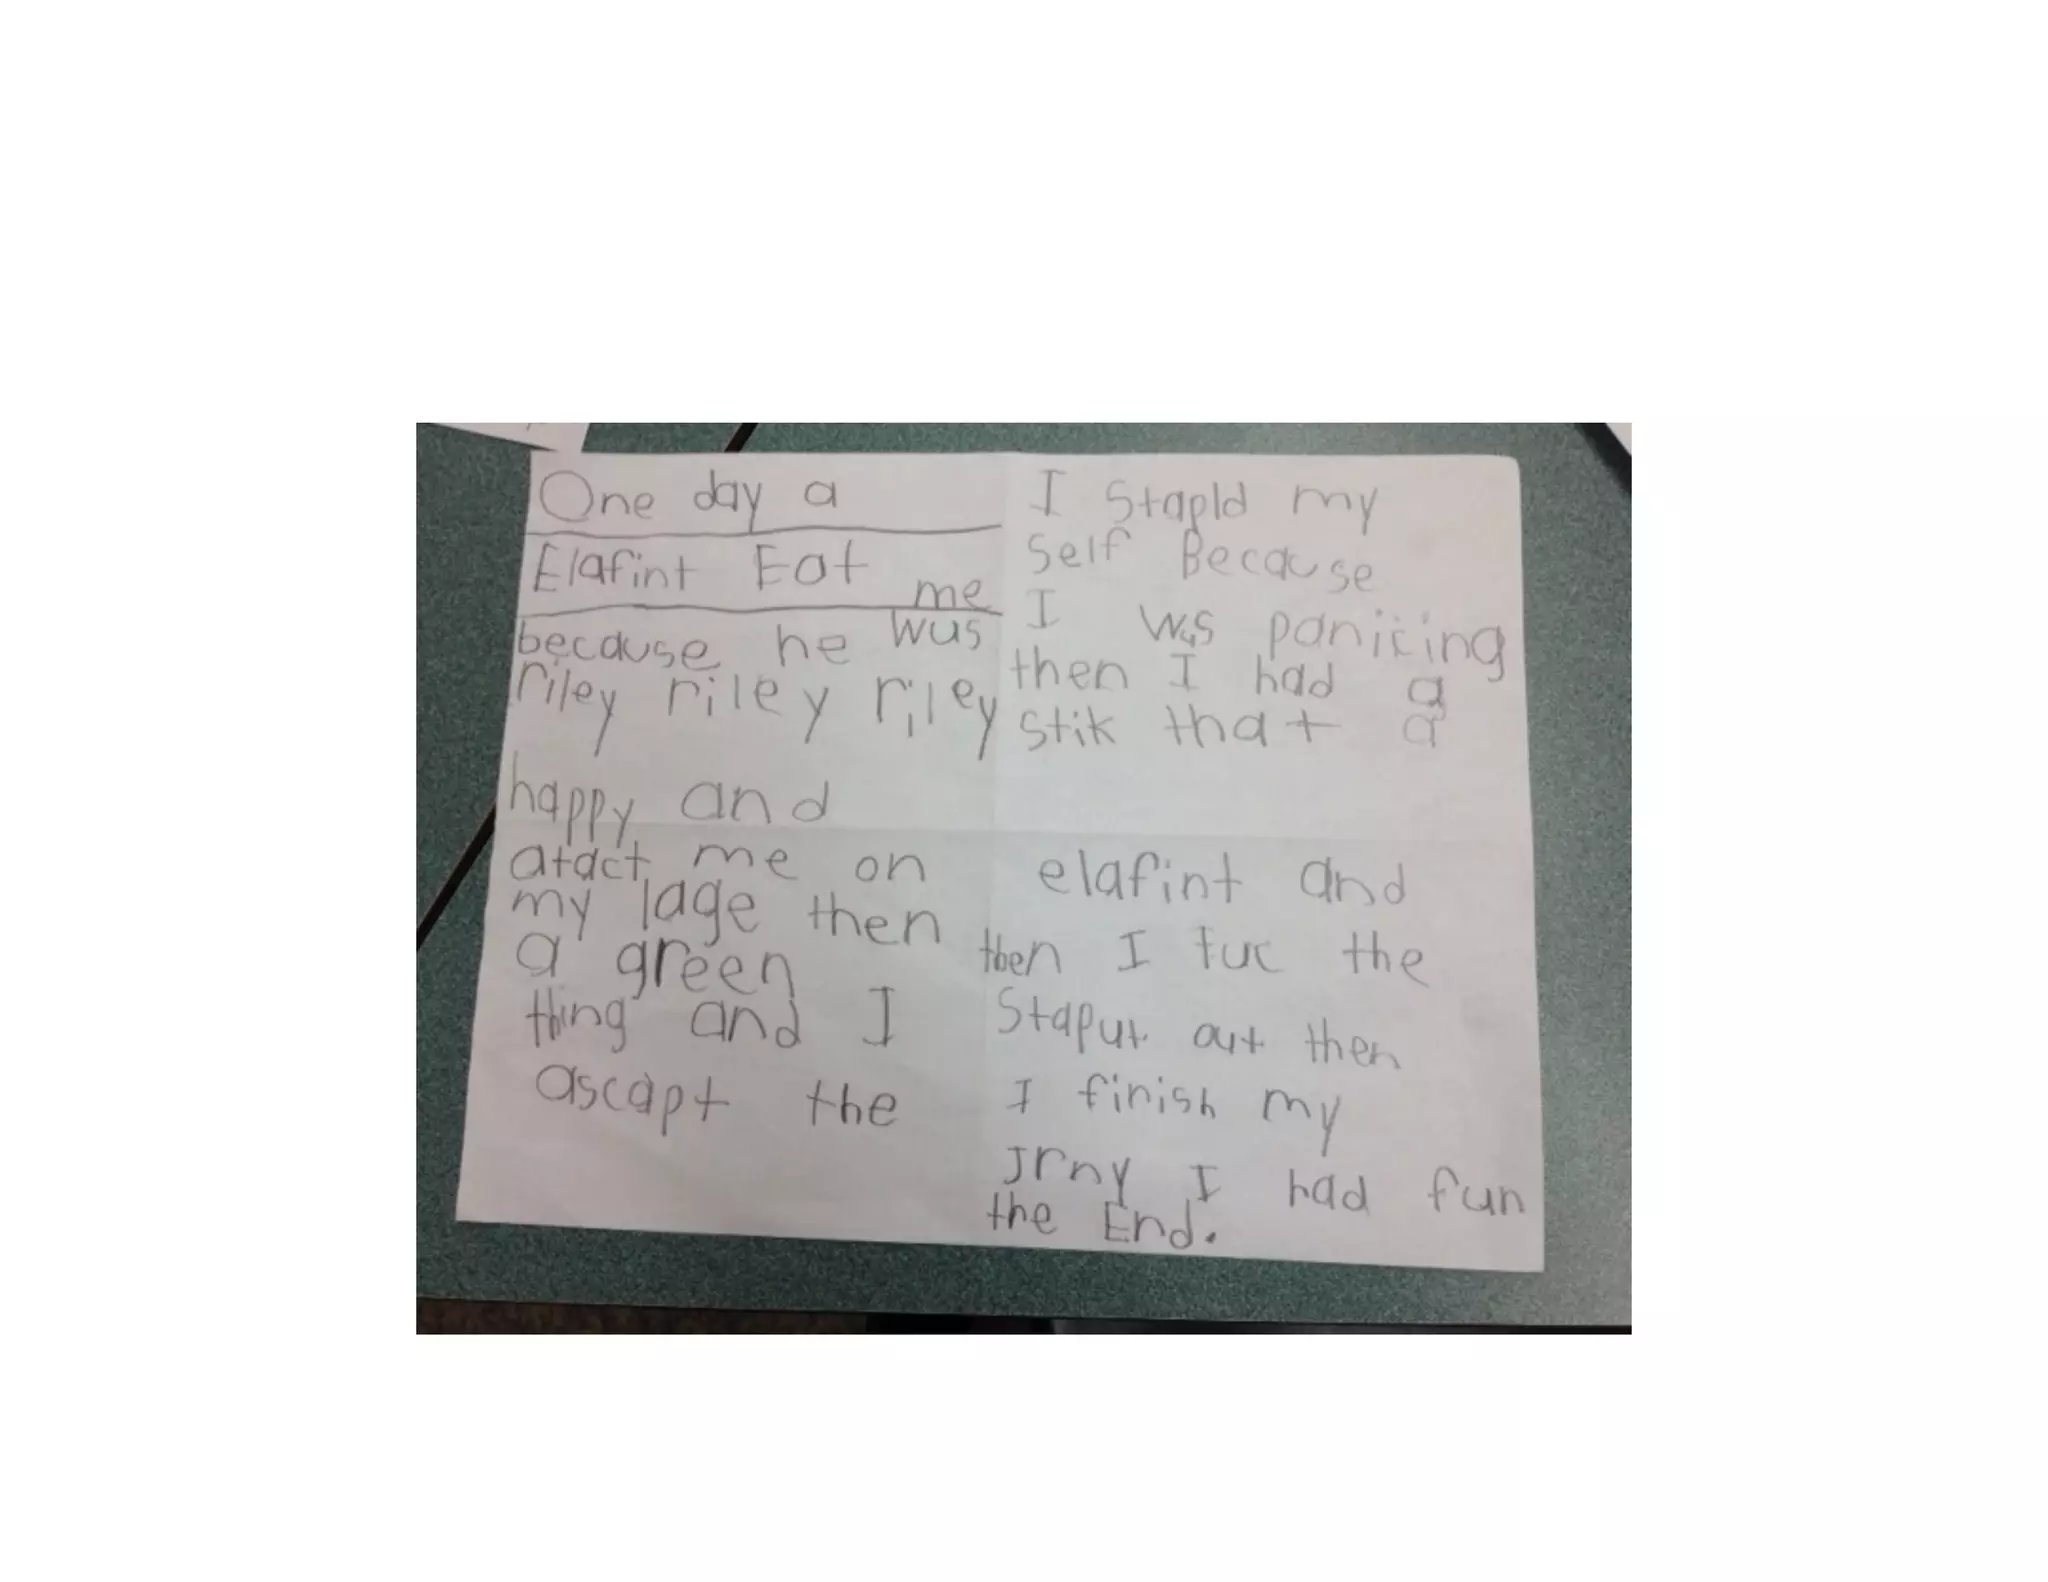 One day a
Elafint Eat me
because he wus
riley riley riley
happy and
I Stapld my
Self Because
I wus panicing
then I had a
Stik that a
atact me on
my lage then
a green
thing and I
ascapt the
elafint and
then I tuc the
Staput aut then
I finish my
Jrny I had fun
the End.